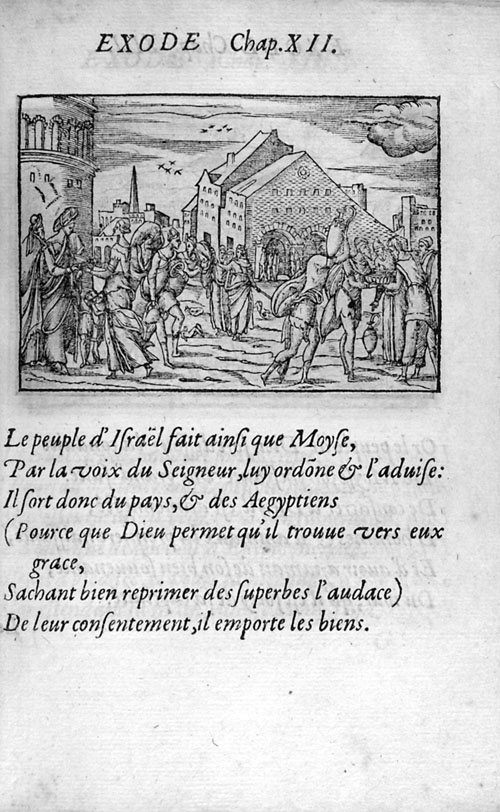 EXODE Chap. XII.
Le peuple d'Iſraël fait ainſi que Moyſe,
Par la voix du Seigneur, luy ordōne & l'aduiſe:
Il ſort donc du pays, & des Aegyptiens
(Pource que Dieu permet qu'il trouue vers eux
grace,
Sachant bien reprimer des ſuperbes l'audace)
De leur conſentement, il emporte les biens.